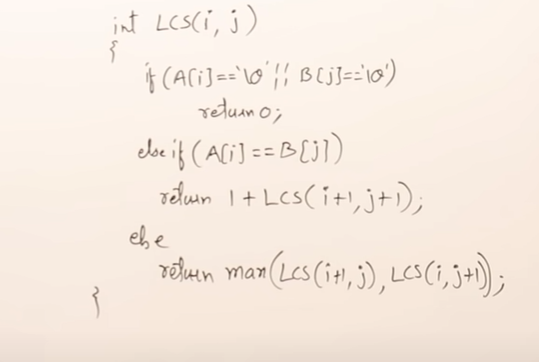 int LCS(i, j)
{
if (A[i]=='\0' || B[j]=='\0')
return 0;
else if (A[i]==B[j])
return 1+LCS(i+1, j+1);
else
return max(LCS(i+1, j), LCS(i, j+1));
}